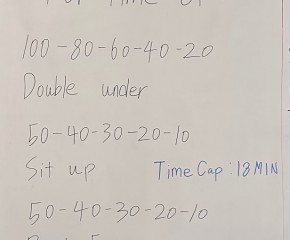 For Time Of
100-80-60-40-20
Double under
50-40-30-20-10
Sit up Time Cap : 18 MIN
50-40-30-20-10